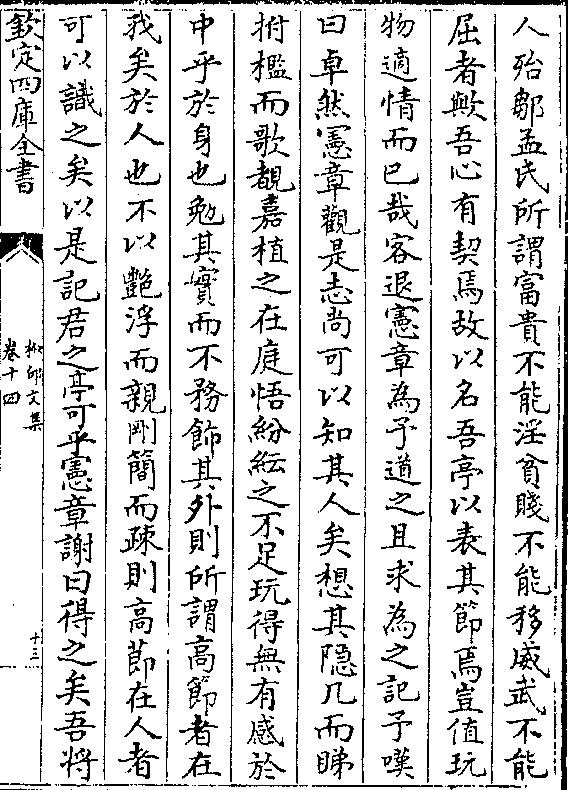 人殆鄒孟氏所謂富貴不能淫貧賤不能移威武不能
屈者歟吾心有契焉故以名吾亭以表其節焉豈值玩
物適情而已哉客退憲章為予道之且求為之記予嘆
曰卓然憲章觀是志尚可以知其人矣想其隠几而睇
拊檻而歌覩嘉植之在庭悟紛紜之不足玩得無有感於
中乎於身也勉其實而不務飾其外則所謂高節者在
我矣於人也不以艶浮而親剛簡而疎則高節在人者
可以識之矣以是記君之亭可乎憲章謝曰得之矣吾將
欽定四庫全書
文集
卷十四
十三